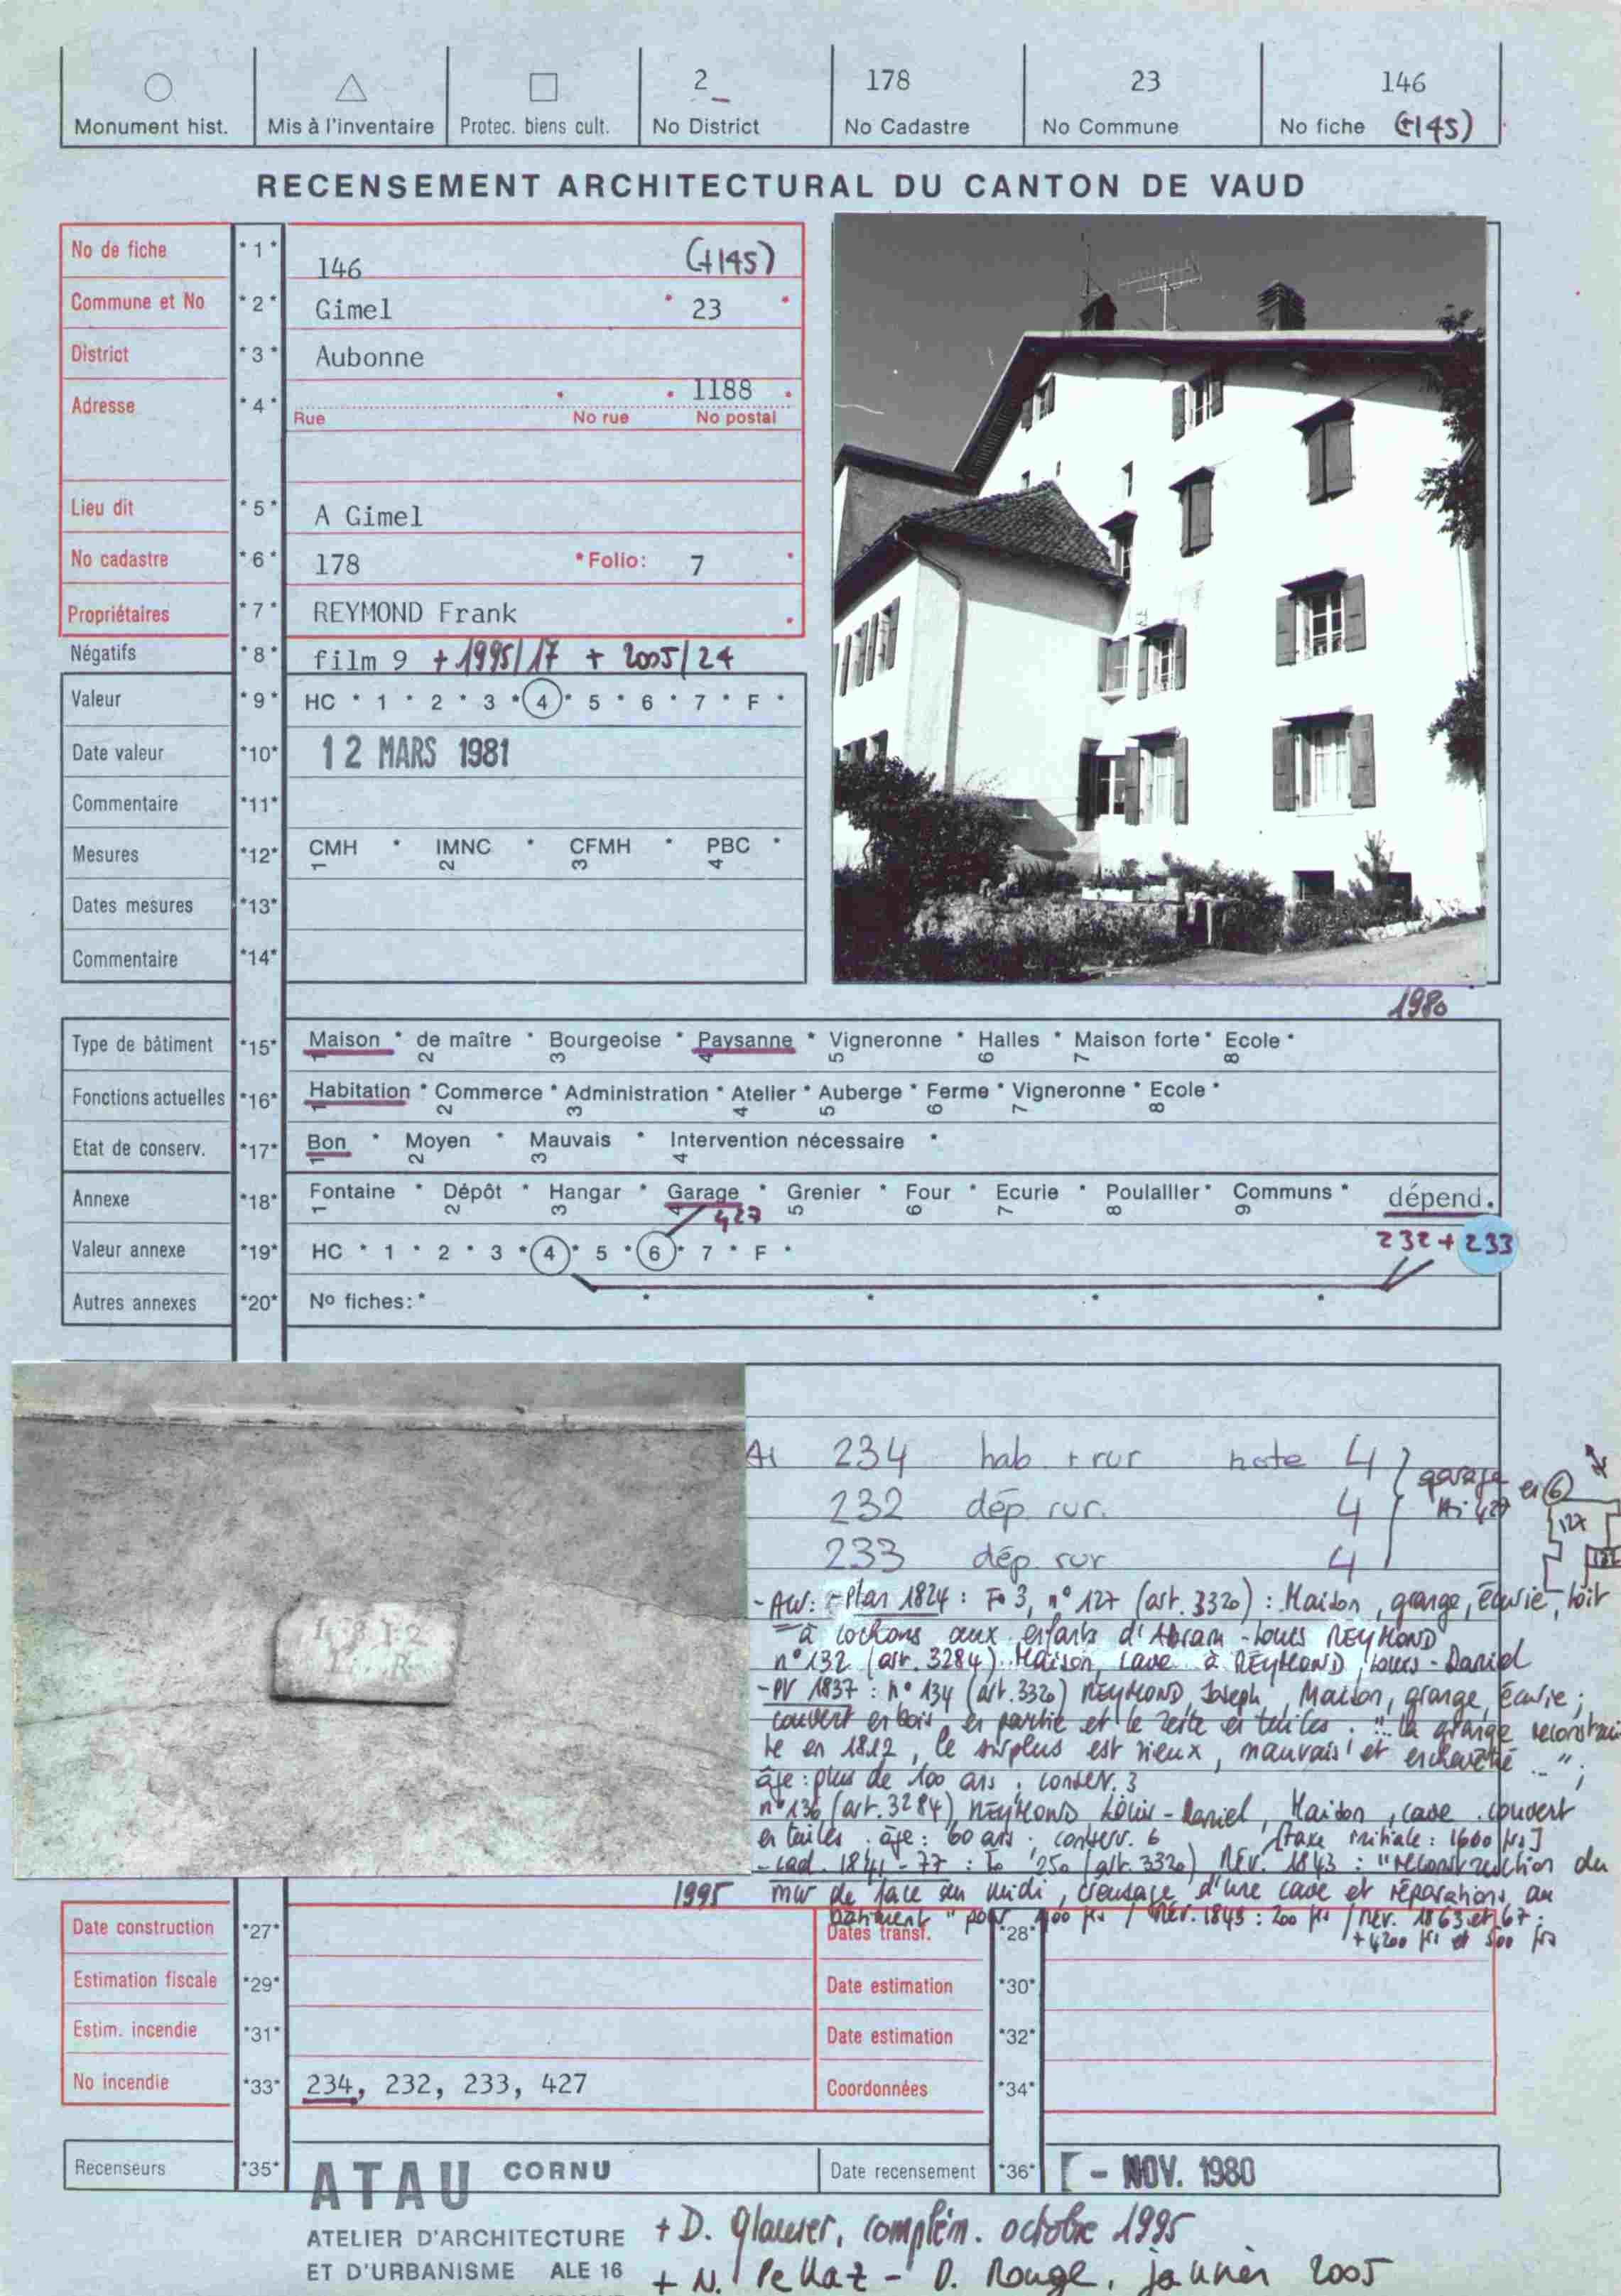 2 178 23 146
Monument hist. Mis à l'inventaire Protec. biens cult. No District No Cadastre No Commune No fiche (+145)
RECENSEMENT ARCHITECTURAL DU CANTON DE VAUD
No de fiche *1* 146 (+145)
Commune et No *2* Gimel * 23 *
District *3* Aubonne
Adresse *4* 1188
Rue No rue No postal
Lieu dit *5* A Gimel
No cadastre *6* 178 *Folio: 7 *
Propriétaires *7* REYMOND Frank
Négatifs *8* film 9 + 1995/17 + 2005/24
Valeur *9* HC * 1 * 2 * 3 * 4 * 5 * 6 * 7 * F *
Date valeur *10* 12 MARS 1981
Commentaire *11*
Mesures *12* CMH * IMNC * CFMH * PBC *
1 2 3 4
Dates mesures *13*
Commentaire *14*
1980
Type de bâtiment *15* Maison * de maître * Bourgeoise * Paysanne * Vigneronne * Halles * Maison forte * Ecole *
1 2 3 4 5 6 7 8
Fonctions actuelles *16* Habitation * Commerce * Administration * Atelier * Auberge * Ferme * Vigneronne * Ecole *
1 2 3 4 5 6 7 8
Etat de conserv. *17* Bon * Moyen * Mauvais * Intervention nécessaire *
1 2 3 4
Annexe *18* Fontaine * Dépôt * Hangar * Garage * Grenier * Four * Ecurie * Poulailler * Communs * dépend.
1 2 3 4 427 5 6 7 8 9
Valeur annexe *19* HC * 1 * 2 * 3 * 4 * 5 * 6 * 7 * F * 232 + 233
Autres annexes *20* No fiches: *
AI 234 hab + rur note 4 garage en 6
232 dép. rur. 4 Ai 427
233 dép. rur 4
127
132
1812
L R
- ACV: - Plan 1824 : Fo 3, n° 127 (art. 3320) : Maison, grange, écurie, toit
à cochons aux enfants d'Abram-Louis REYMOND
n° 132 (art. 3284) Maison, cave à REYMOND, Louis-Daniel
- PV 1837 : n° 134 (art. 3320) REYMOND, Joseph, Maison, grange, écurie ;
couvert en bois en partie et le reste en tuiles. "... la grange reconstrui
te en 1812, le surplus est vieux, mauvais et enchevêtré ..." ;
âge : plus de 100 ans ; conserv. 3
n° 136 (art. 3284) REYMOND Louis-Daniel, Maison, cave. couvert
en tuiles ; âge : 60 ans ; conserv. 6 [taxe initiale : 1600 frs]
- cad. 1841-77 : Fo 250 (art. 3320) Rév. 1843 : "reconstruction du
1995 mur de face au midi, creusage d'une cave et réparations au
bâtiment" pour 400 frs / Rév. 1843 : 200 frs / Rév. 1863 et 67 :
+ 4200 frs et 500 frs
Date construction *27* Dates transf. *28*
Estimation fiscale *29* Date estimation *30*
Estim. incendie *31* Date estimation *32*
No incendie *33* 234, 232, 233, 427 Coordonnées *34*
Recenseurs *35* ATAU CORNU Date recensement *36* - NOV. 1980
ATELIER D'ARCHITECTURE + D. Glauser, complém. octobre 1995
ET D'URBANISME ALE 16 + N. Pellaz - D. Rouge, janvier 2005